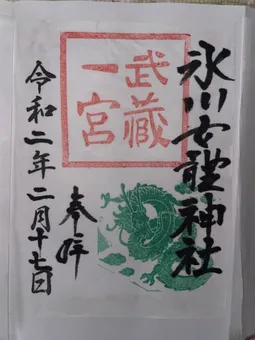 氷川女體神社
武蔵
一宮
奉拝
令和二年二月十七日